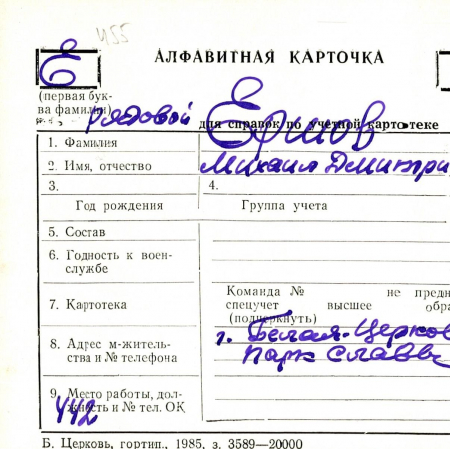 Е 455
АЛФАВИТНАЯ КАРТОЧКА
(первая бук-
ва фамилии)
рядовой для справок по учетной картотеке
1. Фамилия Ершов
2. Имя, отчество Михаил Дмитри
3. 4.
Год рождения Группа учета
5. Состав
6. Годность к воен-
службе
Команда № не предн
7. Картотека спецучет высшее обра
(подчеркнуть)
г. Белая-Церков
8. Адрес м-житель-
ства и № телефона Парк Славы
9. Место работы, дол-
жность и № тел. ОК
442
Б. Церковь, гортип., 1985, з. 3589—20000